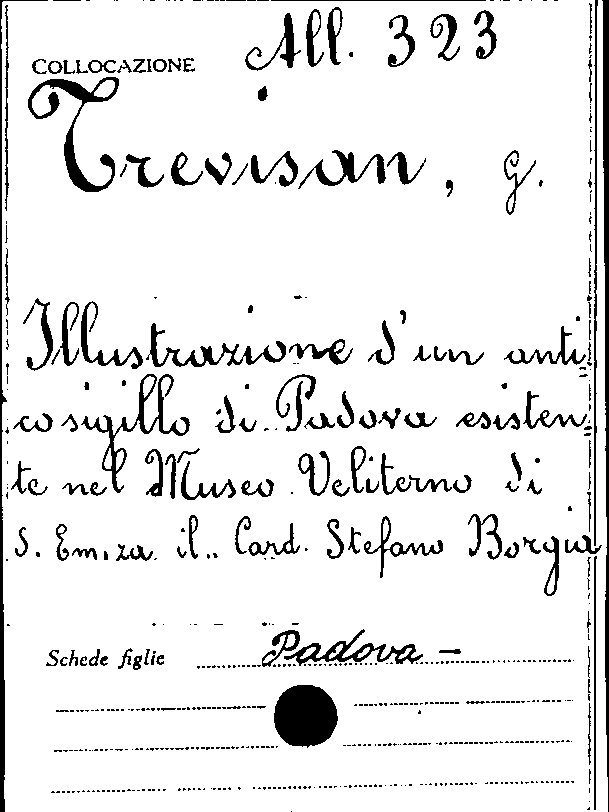 COLLOCAZIONE All. 323
Trevisan, G.
Illustrazione d'un anti=
co sigillo di Padova esisten=
te nel Museo Veliterno di
S. Em.za il.. Card. Stefano Borgia
Schede figlie Padova -